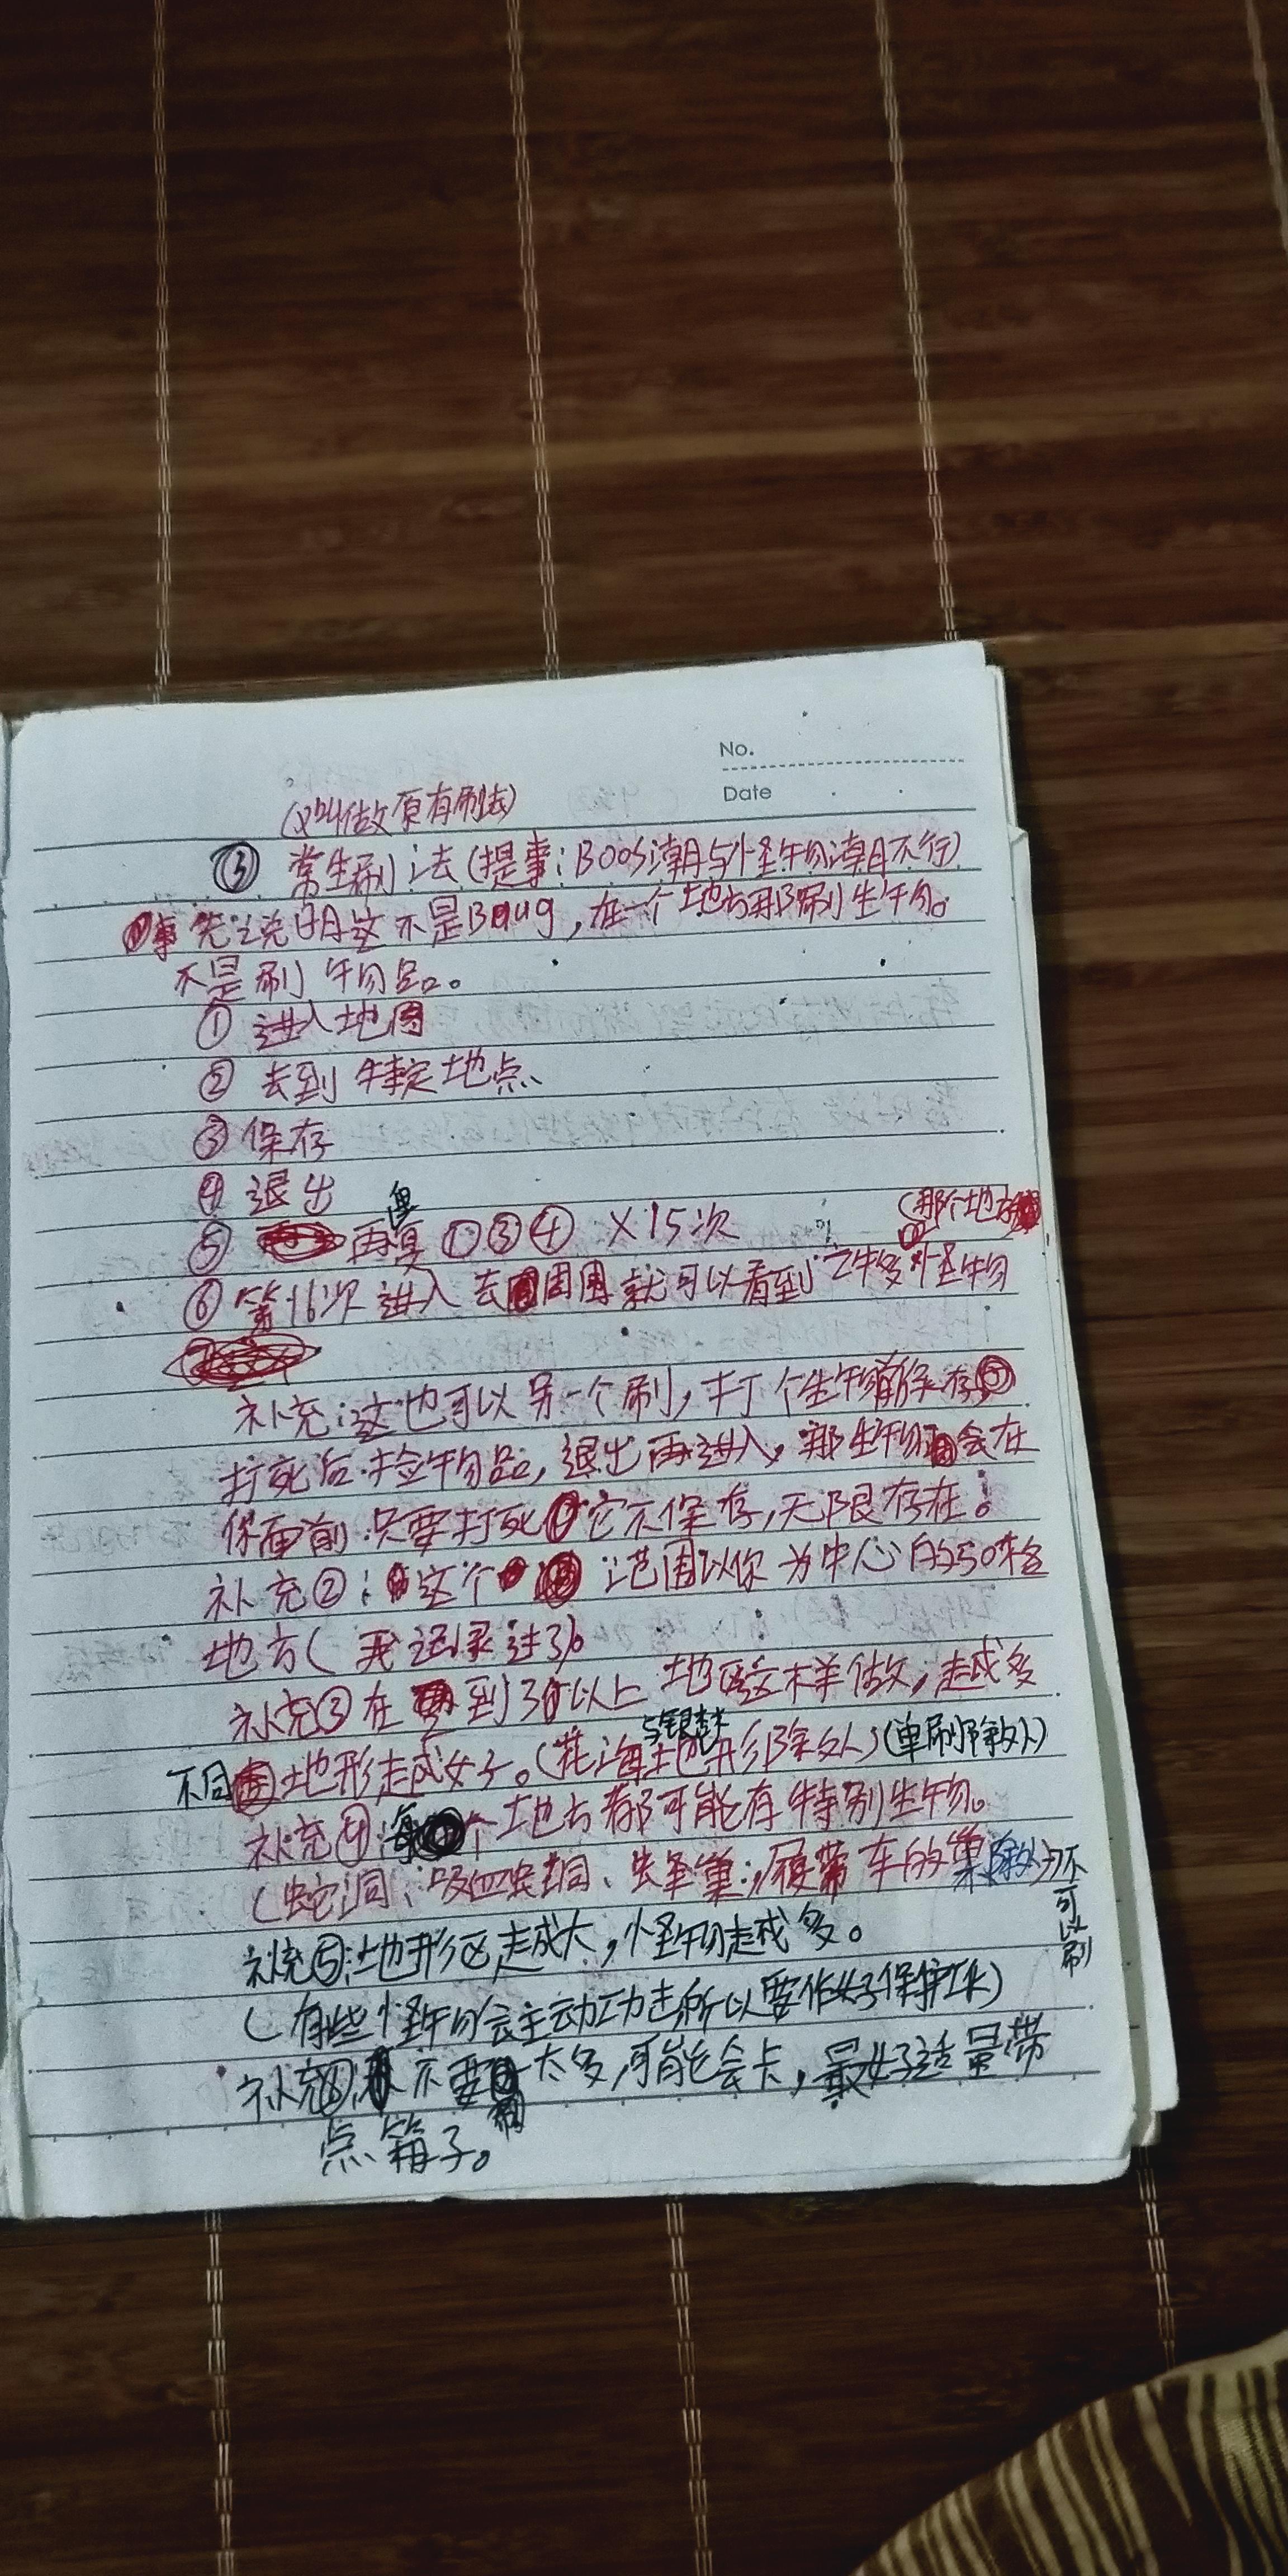 No.
Date
(又叫做原有刷法)
③ 常生刷法(提事:Boos潮与怪物潮不行)
事先说明这不是Baug,在一个地方那刷生物。
不是刷物品。
① 进入地图
② 去到特定地点
③ 保存
④ 退出
⑤ 再复 ①③④ ×15次
(那个地方
⑥ 第16次进入去周围就可以看到怪物
补充:这也可以另一个刷,打个生物前保存
打死后捡物品,退出再进入,那生物会在
你面前.只要打死它不保存,无限存在!
补充②:这个范围以你为中心的50格
地方(我记录过36
补充③在到30以上地区这样做,越多
与银
不同地形越成好。(花海地形除外)(单刷除外)
补充④:每个地方都可能存特别生物。
(蛇洞、吸血虫洞、虫巢;履带车的巢除外)不可以刷
补充⑤:地形区越大,怪物越多。
(有些怪物会主动攻击所以要作好保护工)
补充⑥,不要太多,可能会卡,最好适量带
点箱子。